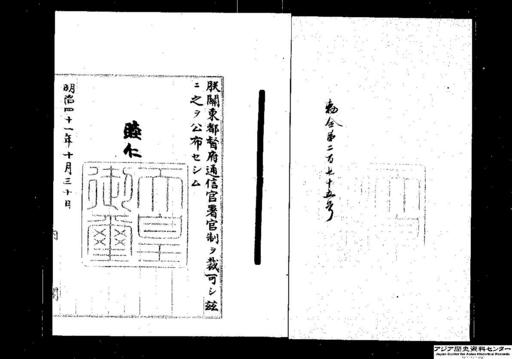 勅令第二百七十五号
朕關東都督府通信官署官制ヲ裁可シ玆
ニ之ヲ公布セシム
睦仁
天皇御璽
明治四十一年十月三十日
内閣
アジア歴史資料センター
Japan Center for Asian Historical Records